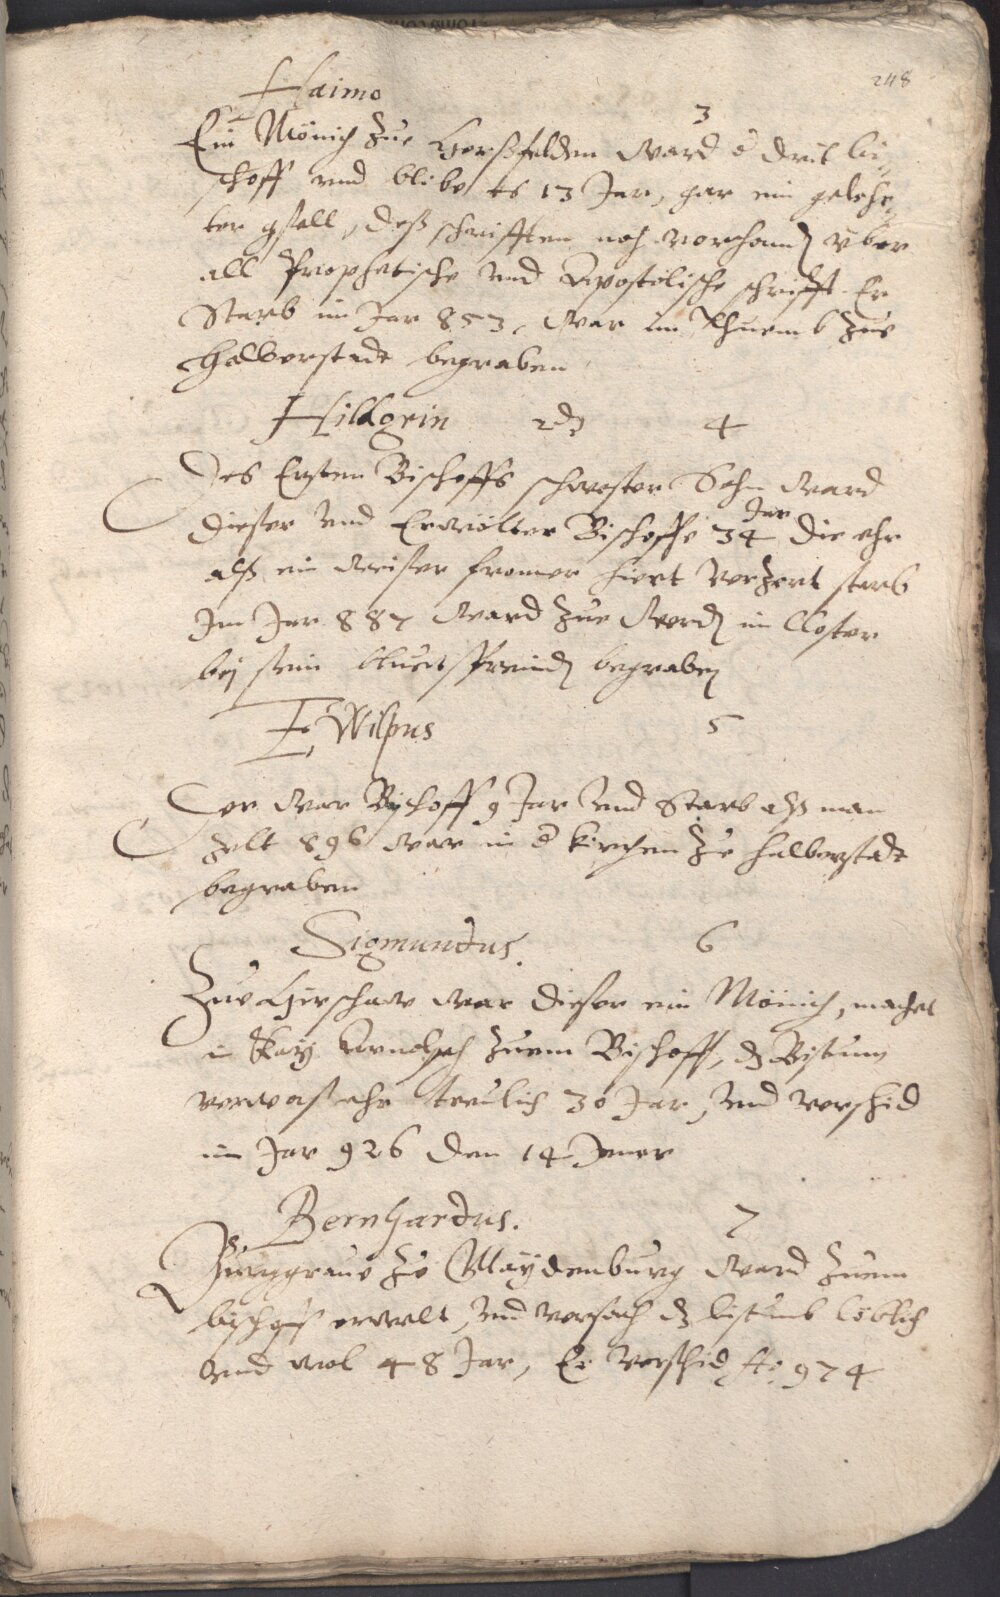 248
Haimo
3
Ein Mönich zue Herßfelden ward d drit bi-
schoff und blibe es 13 Jar, gar ein geleher-
ter gsell, deß schrifften noh vorhand über
all Prophetische und Apostolische schrifft. Er
Starb im Jar 853, war im Thuemb zue
Halberstadt begraben
Hildgrin 2d 4
Des Ersten Bischoffs schwester Sohn ward
dieser und Erwölter Bischoffe 34 Jar die ehr
alß ein weiser fromer hiert verzert starb
Im Jar 887 ward zue Werd im Closter
bej sein bluetsfreind begraben
Ewilpus 5
Der war Byschoff 9 Jar und Starb alß man
zelt 896 war in d kirchen zue halberstadt
begraben
Sigmundus. 6
Zue Hirschaw war dieser ein Mönich, machet
in Kay Arnolph zuem Bischoff, dz Bistum
verwaß ehr treulich 30 Jar, und verschid
im Jar 926 den 14 Jener
Bernhardus. 7
Burggrave zu Maydenburg ward zuem
bischoff erwelt, und versach dz bistumb löblich
und wol 48 Jar, Er verschid Ao 974